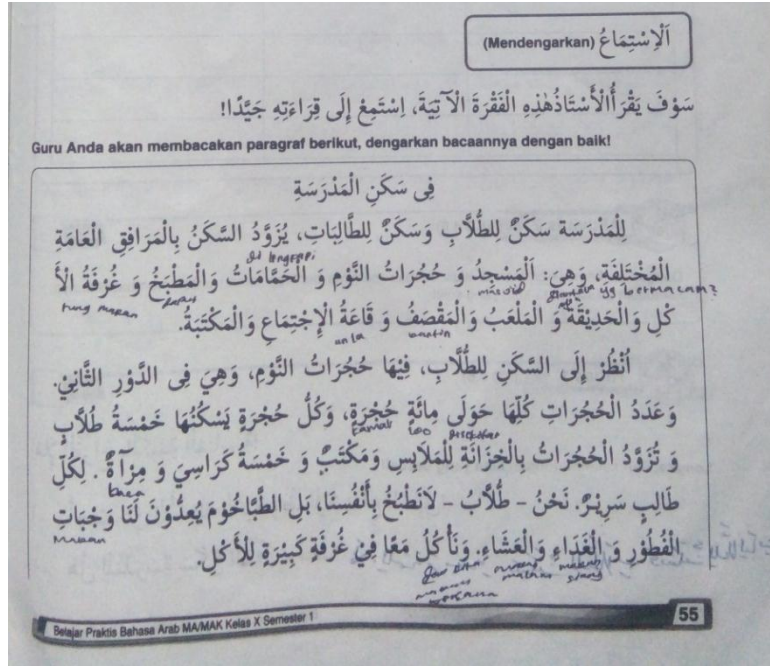 (Mendengarkan) اَلْاِسْتِمَاعُ
سَوْفَ يَقْرَأُ الْأُسْتَاذُ هٰذِهِ الْفَقْرَةَ الْآتِيَةَ، اِسْتَمِعْ إِلَى قِرَاءَتِهِ جَيِّدًا!
Guru Anda akan membacakan paragraf berikut, dengarkan bacaannya dengan baik!
فِى سَكَنِ الْمَدْرَسَةِ
لِلْمَدْرَسَة سَكَنٌ لِلطُّلَّابِ وَسَكَنٌ لِلطَّالِبَاتِ، يُزَوَّدُ السَّكَنُ بِالْمَرَافِقِ الْعَامَةِ
di lengkapi
الْمُخْتَلِفَةِ، وَهِيَ: اَلْمَسْجِدُ وَ حُجُرَاتُ النَّوْمِ وَ الْحَمَّامَاتُ وَالْمَطْبَخُ وَ غُرْفَةُ الْأَ
yg bermacam2 masjid dapur
كْلِ وَالْحَدِيْقَةُ وَ الْمَلْعَبُ وَالْمَقْصَفُ وَ قَاعَةُ الْاِجْتِمَاعِ وَالْمَكْتَبَةُ.
makan kantin aula
أُنْظُرْ إِلَى السَّكَنِ لِلطُّلَّابِ، فِيْهَا حُجُرَاتُ النَّوْمِ، وَهِيَ فِى الدَّوْرِ الثَّانِيْ.
وَ عَدَدُ الْحُجُرَاتِ كُلِّهَا حَوَلَى مِائَةِ حُجْرَةٍ، وَكُلُّ حُجْرَةٍ يَسْكُنُهَا خَمْسَةُ طُلَّابٍ
100 kamar
وَ تُزَوَّدُ الْحُجُرَاتُ بِالْخِزَانَةِ لِلْمَلَابِسِ وَمَكْتَبٌ وَ خَمْسَةُ كَرَاسِيَ وَ مِرْآةٌ . لِكُلِّ
طَالِبٍ سَرِيْرٌ. نَحْنُ - طُلَّابُ - لَانَطْبُخُ بِأَنْفُسِنَا، بَلِ الطَّبَّاخُوْمَ يُعِدُّوْنَ لَنَا وَجْبَاتِ
Makan
الْفُطُوْرِ وَ الْغَدَاءِ وَالْعَشَاءِ. وَنَأْكُلُ مَعًا فِيْ غُرْفَةٍ كَبِيْرَةٍ لِلْأَكْلِ.
makan siang makan
Belajar Praktis Bahasa Arab MA/MAK Kelas X Semester 1
55